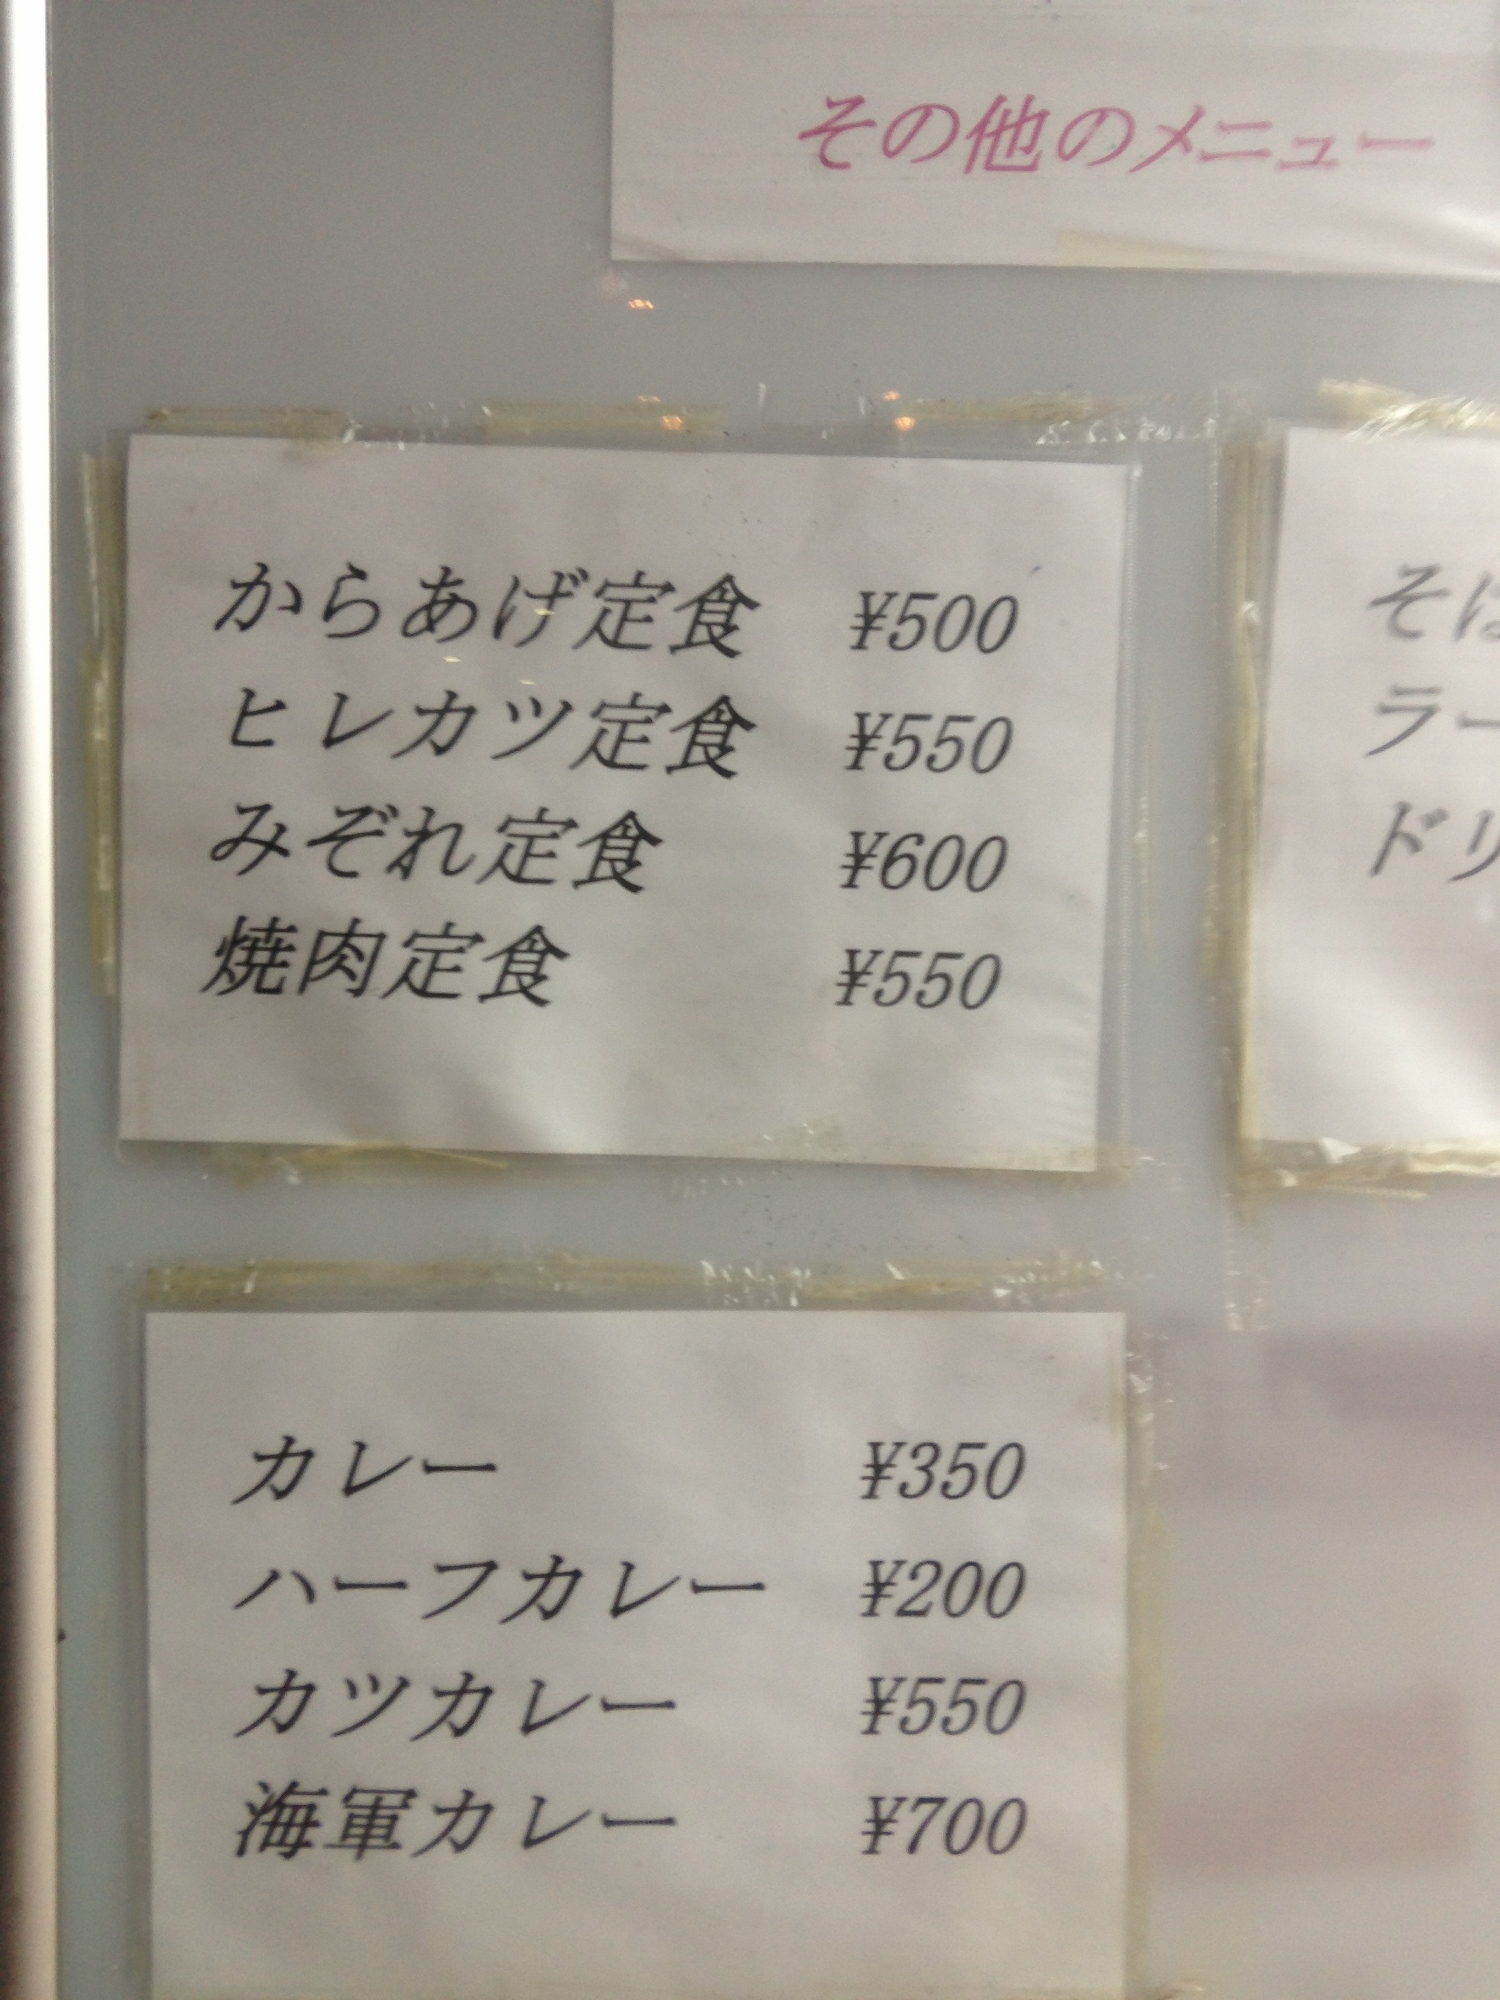 その他のメニュー
からあげ定食 ¥500
ヒレカツ定食 ¥550
みぞれ定食 ¥600
焼肉定食 ¥550
カレー ¥350
ハーフカレー ¥200
カツカレー ¥550
海軍カレー ¥700